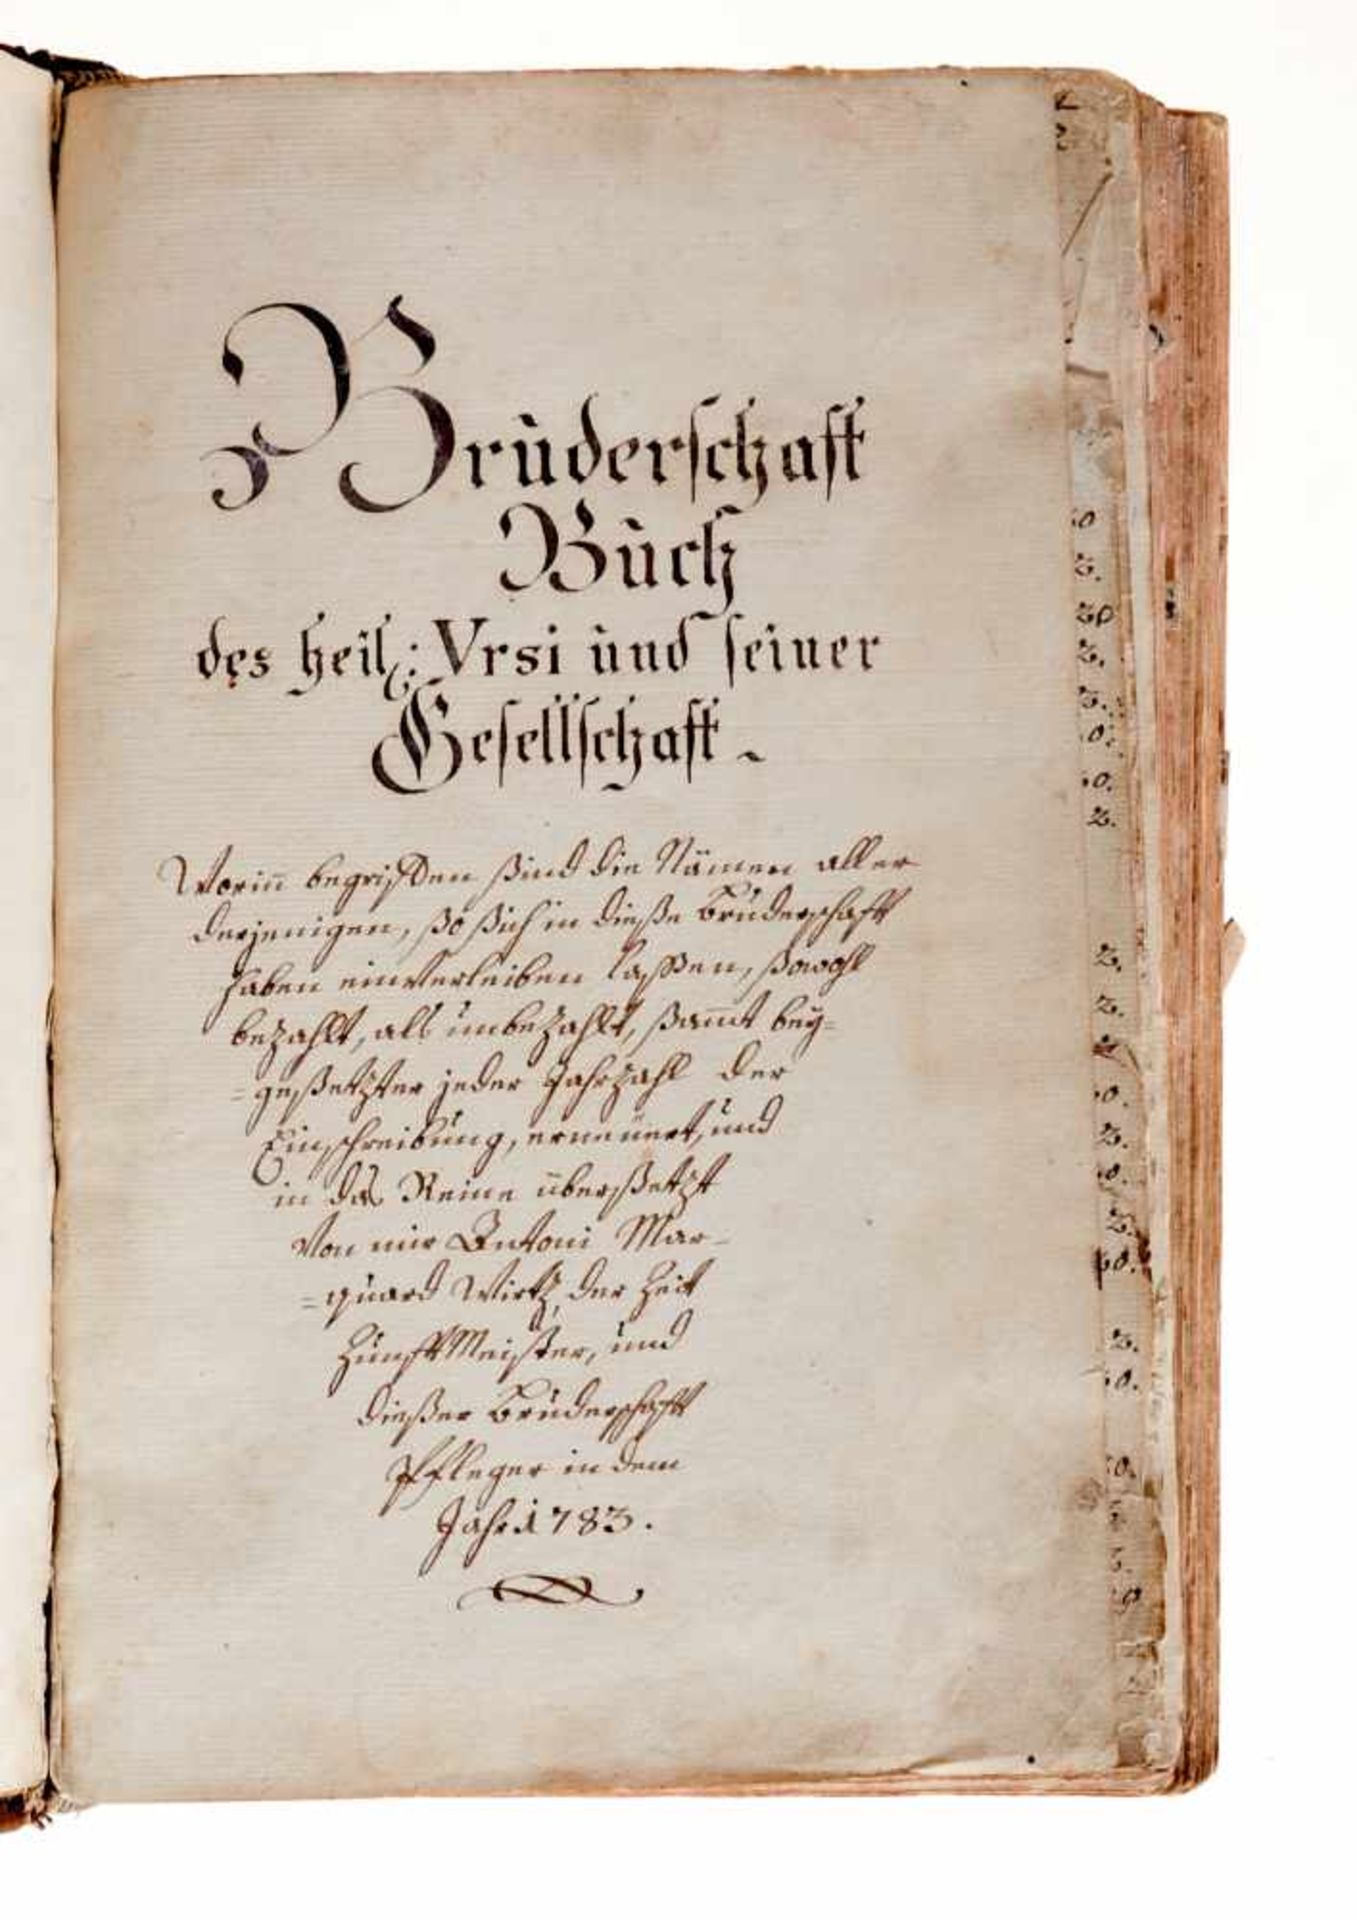 Brüderschafft
Büch
des heil: Vrsi ùnd seiner
Gesellschafft.
Worin̄ begriffen sind die Nämen aller
derjenigen, ßo sich in dieße Brüderschafft
haben einverleiben laßen, ßowohl
bezahlt, als ùnbezahlt, ßam̄t bey=
=geßetzter jeder Jahrzahl der
Einschreibùng, erneüert, ùnd
in das Reine überßetzt
Von mir Antoni Mar=
=quard Wirtz, der Zeit
Zùnfft Meister, ùnd
dießer Brüderschafft
Pfleger in dem
Jahr 1783.